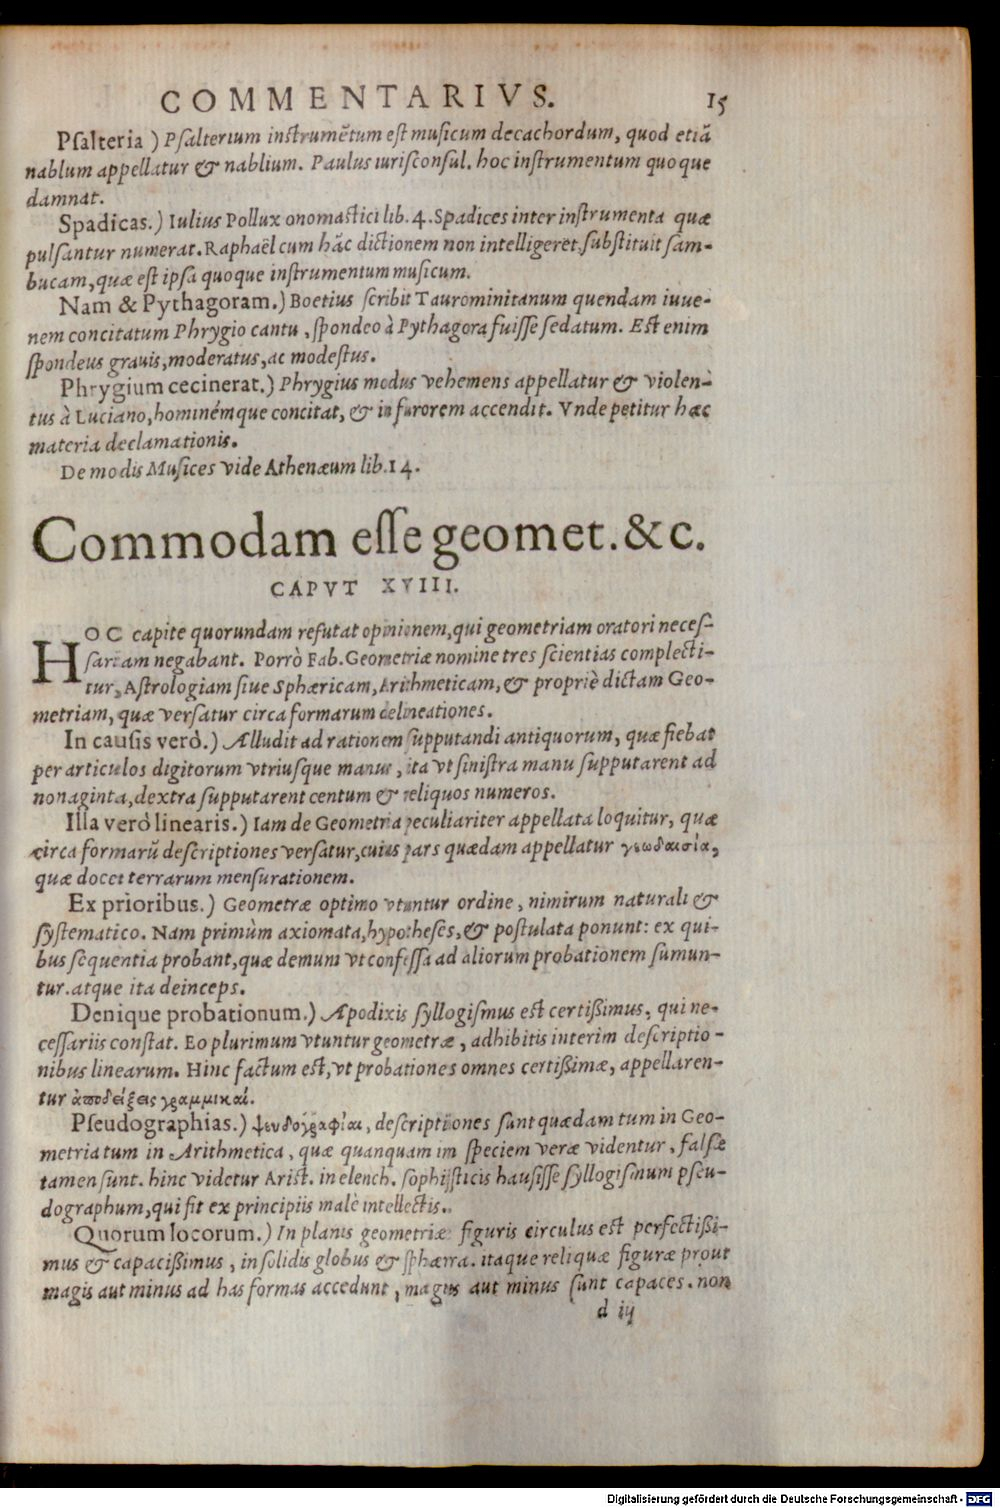 COMMENTARIVS. 15
Psalteria ) Psalterium instrumẽtum est musicum decachordum, quod etiã
nablum appellatur & nablium. Paulus iurisconsul. hoc instrumentum quoque
damnat.
Spadicas.) Iulius Pollux onomastici lib. 4. Spadices inter instrumenta quæ
pulsantur numerat. Raphaël cum hãc dictionem non intelligeret, substituit sam-
bucam, quæ est ipsa quoque instrumentum musicum.
Nam & Pythagoram.) Boetius scribit Taurominitanum quendam iuue-
nem concitatum Phrygio cantu, spondeo à Pythagora fuisse sedatum. Est enim
spondeus grauis, moderatus, ac modestus.
Phrygium cecinerat.) Phrygius modus vehemens appellatur & violen-
tus à Luciano, hominémque concitat, & in furorem accendit. Vnde petitur hæc
materia declamationis.
De modis Musices vide Athenæum lib. 14.
Commodam esse geomet. &c.
CAPVT XVIII.
HOC capite quorundam refutat opinionem, qui geometriam oratori neces-
sariam negabant. Porrò Fab. Geometriæ nomine tres scientias complecti-
tur, Astrologiam siue Sphæricam, Arithmeticam, & propriè dictam Geo-
metriam, quæ versatur circa formarum delineationes.
In causis verò.) Alludit ad rationem supputandi antiquorum, quæ fiebat
per articulos digitorum vtriusque manus, ita vt sinistra manu supputarent ad
nonaginta, dextra supputarent centum & reliquos numeros.
Illa verò linearis.) Iam de Geometria peculiariter appellata loquitur, quæ
circa formarũ descriptiones versatur, cuius pars quædam appellatur γεωδαισία,
quæ docet terrarum mensurationem.
Ex prioribus.) Geometræ optimo vtuntur ordine, nimirum naturali &
systematico. Nam primùm axiomata, hypotheses, & postulata ponunt: ex qui-
bus sequentia probant, quæ demum vt confessa ad aliorum probationem sumun-
tur. atque ita deinceps.
Denique probationum.) Apodixis syllogismus est certißimus, qui ne-
cessariis constat. Eo plurimum vtuntur geometræ, adhibitis interim descriptio-
nibus linearum. Hinc factum est, vt probationes omnes certißimæ, appellaren-
tur ἀποδείξεις γραμμικαί.
Pseudographias.) ψευδογραφίαι, descriptiones sunt quædam tum in Geo-
metria tum in Arithmetica, quæ quanquam im speciem veræ videntur, falsæ
tamen sunt. hinc videtur Arist. in elench. sophisticis hausisse syllogismum pseu-
dographum, qui fit ex principiis malè intellectis.
Quorum locorum.) In planis geometriæ figuris circulus est perfectißi-
mus & capacißimus, in solidis globus & sphærra. itaque reliquæ figuræ prout
magis aut minus ad has formas accedunt, magis aut minus sunt capaces. non
d iij
Digitalisierung gefördert durch die Deutsche Forschungsgemeinschaft - DFG